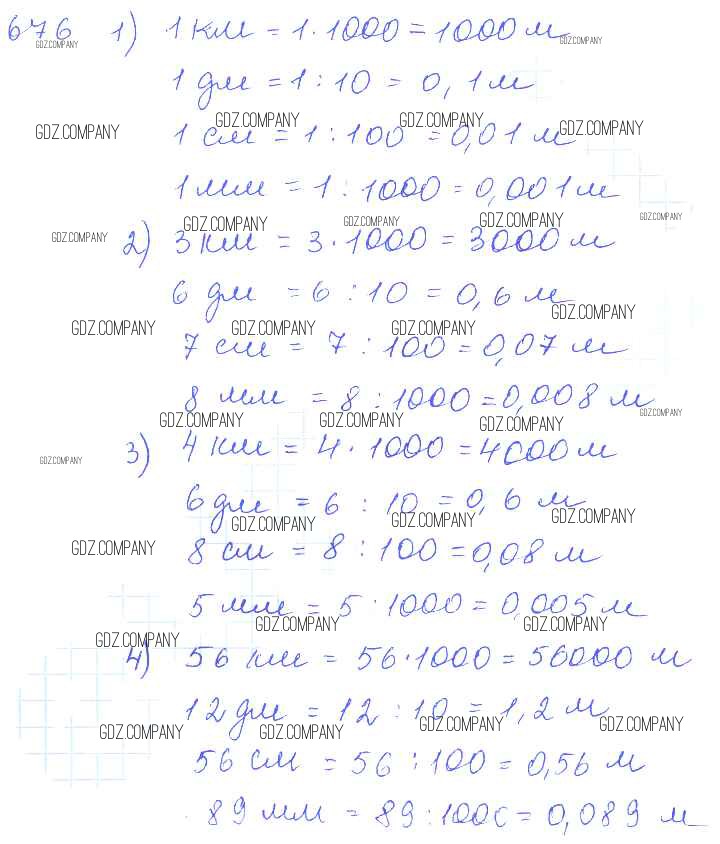 676 1) 1 км = 1 · 1000 = 1000 м
GDZ.COMPANY GDZ.COMPANY
1 дм = 1 : 10 = 0,1 м
GDZ.COMPANY GDZ.COMPANY GDZ.COMPANY GDZ.COMPANY
1 см = 1 : 100 = 0,01 м
1 мм = 1 : 1000 = 0,001 м
GDZ.COMPANY GDZ.COMPANY GDZ.COMPANY GDZ.COMPANY GDZ.COMPANY
2) 3 км = 3 · 1000 = 3000 м
6 дм = 6 : 10 = 0,6 м
GDZ.COMPANY GDZ.COMPANY GDZ.COMPANY GDZ.COMPANY
7 см = 7 : 100 = 0,07 м
8 мм = 8 : 1000 = 0,008 м
GDZ.COMPANY GDZ.COMPANY GDZ.COMPANY GDZ.COMPANY
3) 4 км = 4 · 1000 = 4000 м
GDZ.COMPANY
6 дм = 6 : 10 = 0,6 м
GDZ.COMPANY GDZ.COMPANY GDZ.COMPANY
GDZ.COMPANY 8 см = 8 : 100 = 0,08 м
5 мм = 5 : 1000 = 0,005 м
GDZ.COMPANY GDZ.COMPANY GDZ.COMPANY
4) 56 км = 56 · 1000 = 56000 м
12 дм = 12 : 10 = 1,2 м
GDZ.COMPANY GDZ.COMPANY GDZ.COMPANY GDZ.COMPANY
56 см = 56 : 100 = 0,56 м
89 мм = 89 : 1000 = 0,089 м